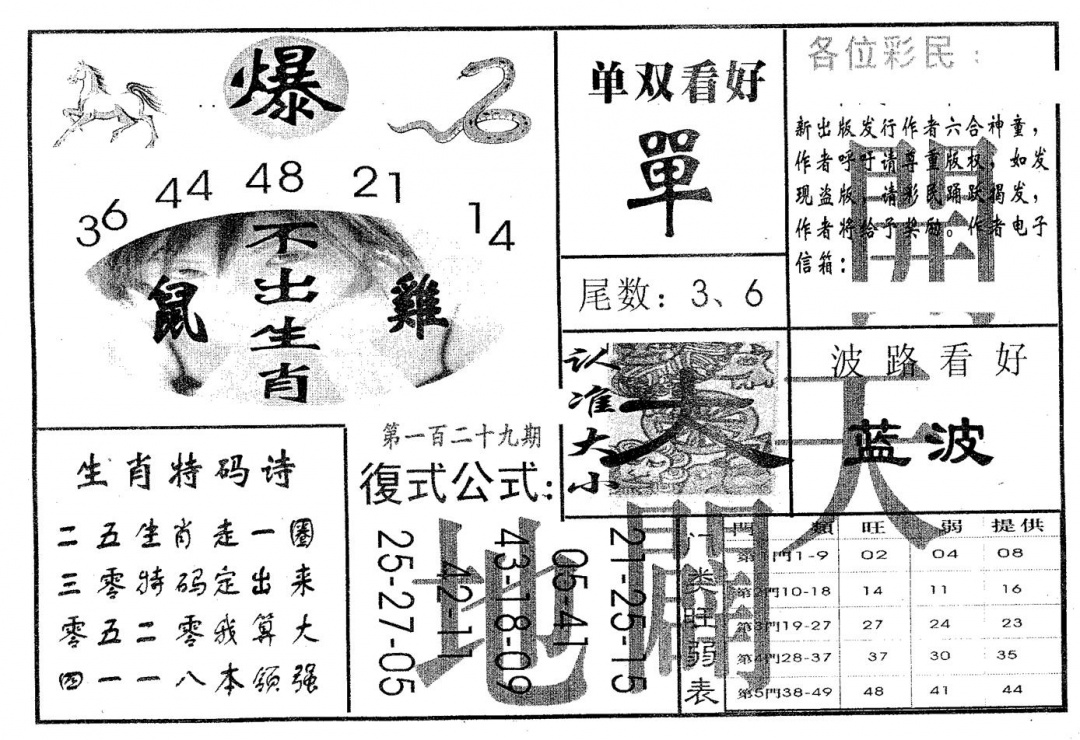 爆
36 44 48 21 14
不出生肖
鼠
雞
单双看好
單
尾数：3、6
各位彩民：
新出版发行作者六合神童，
作者呼吁请尊重版权，如发
现盗版，请彩民踊跃揭发，
作者将给予奖励。作者电子
信箱：
認准大小
大
波路看好
蓝波
天
開
地
闢
生肖特码诗
二五生肖走一圈
三零特码定出来
零五二零我算大
四一一八本领强
第一百二十九期
復式公式：
21-25-15
05-41
43-18-09
42-11
25-27-05
门类旺弱表
門 類 旺 弱 提供
第1門1-9 02 04 08
第2門10-18 14 11 16
第3門19-27 27 24 23
第4門28-37 37 30 35
第5門38-49 48 41 44